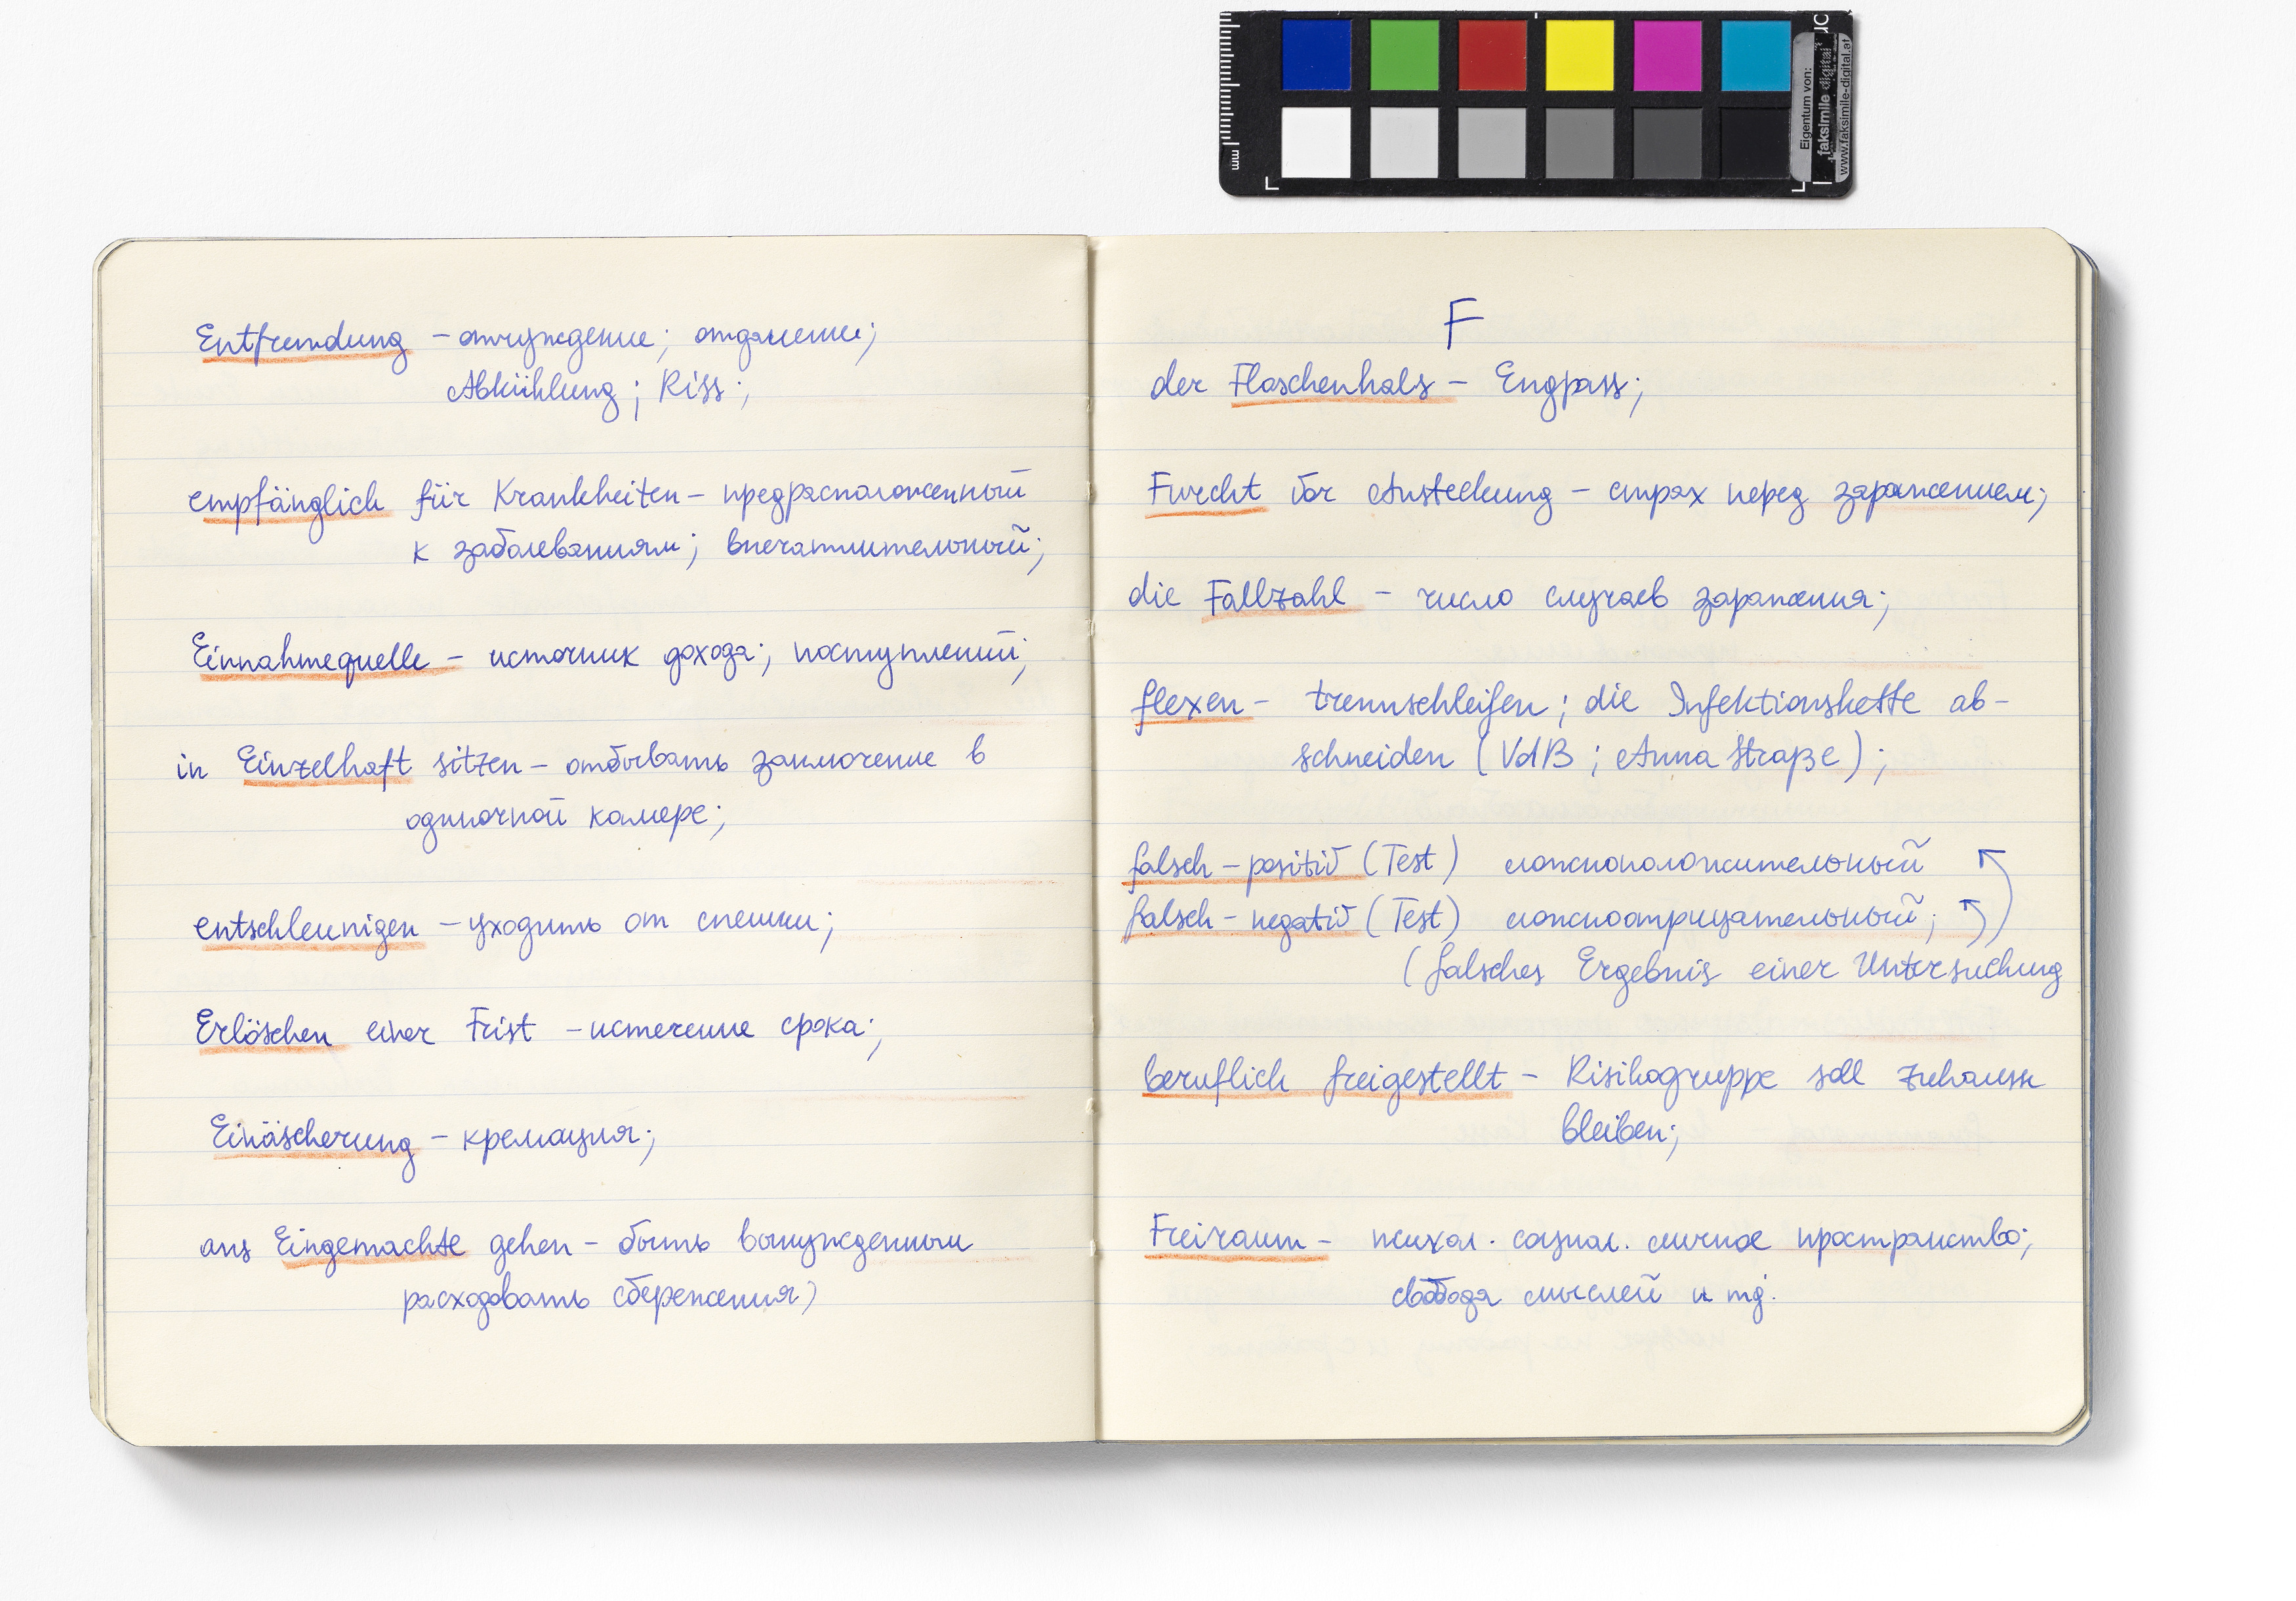 Entfremdung – отчуждение; отдаление;
Abkühlung; Riss;
empfänglich für Krankheiten – предрасположенный
к заболеваниям; впечатлительный;
Einnahmequelle – источник дохода; поступлений;
in Einzelhaft sitzen – отбывать заключение в
одиночной камере;
entschleunigen – уходить от спешки;
Erlöschen einer Frist – истечение срока;
Einäscherung – кремация;
ans Eingemachte gehen – быть вынужденным
расходовать сбережения)
F
der Flaschenhals – Engpass;
Furcht vor Ansteckung – страх перед заражением;
die Fallzahl – число случаев заражения;
flexen – trennschleifen; die Infektionskette ab-
schneiden (VdB; Anna Straße);
falsch – positiv (Test) ложноположительный
falsch – negativ (Test) ложноотрицательный;
(falsches Ergebnis einer Untersuchung
beruflich freigestellt – Risikogruppe soll zuhause
bleiben;
Freiraum – психол. социал. личное пространство;
свобода мыслей и тд.
mm
Eigentum von:
faksimile digital
www.faksimile-digital.at